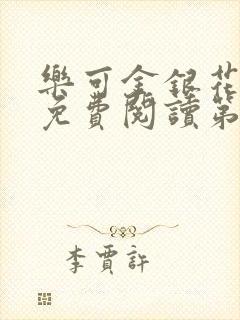 樂可金銀花
免費閱讀第
李賈許